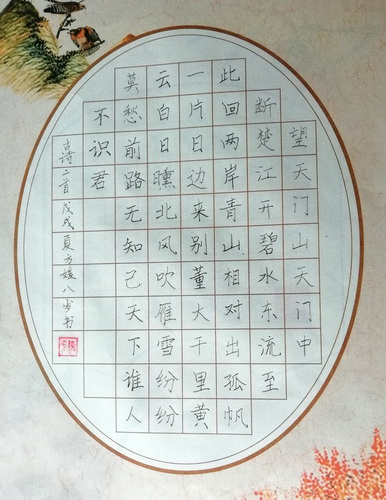 望天门山天门中
断楚江开碧水东流至
此回两岸青山相对出孤帆
一片日边来别董大千里黄
云白日曛北风吹雁雪纷纷
莫愁前路无知己天下谁人
不识君
古诗二首戊戌夏方媛八岁书